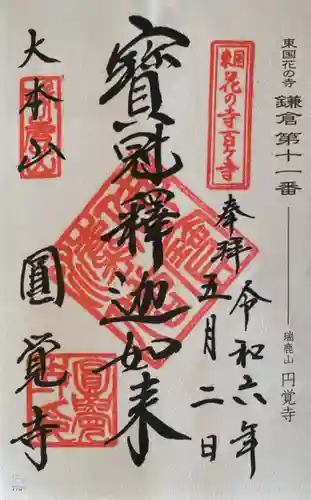 東国花の寺 鎌倉第十一番
瑞鹿山 円覚寺
東国
花の寺百ヶ寺
奉拝
令和六年
五月二日
寳冠釋迦如来
大本山
圓覚寺